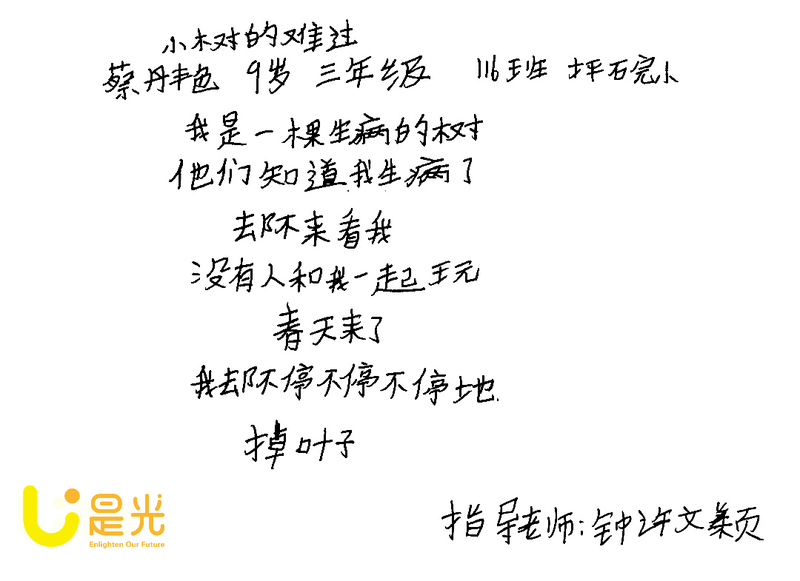 小树的难过
蔡丹艳 9岁 三年级 116班 坪石完小
我是一棵生病的树
他们知道我生病了
却不来看我
没有人和我一起玩
春天来了
我却不停不停不停地
掉叶子
是光
Enlighten Our Future
指导老师:钟许文颖